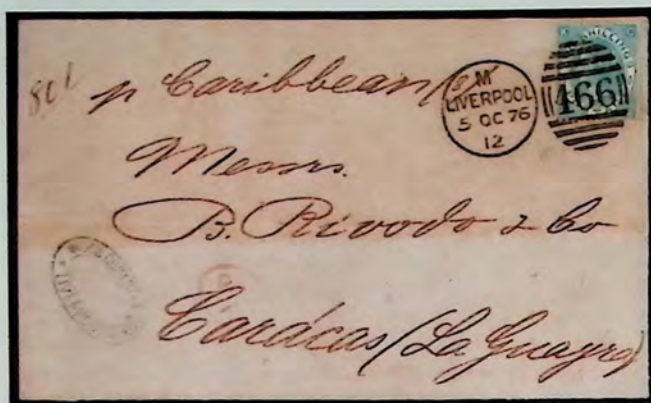 p Caribbean
M
LIVERPOOL
5 OC 76
12
466
SHILLINGS
Messrs.
B. Rivodo & Co
Carácas (La Guayra)